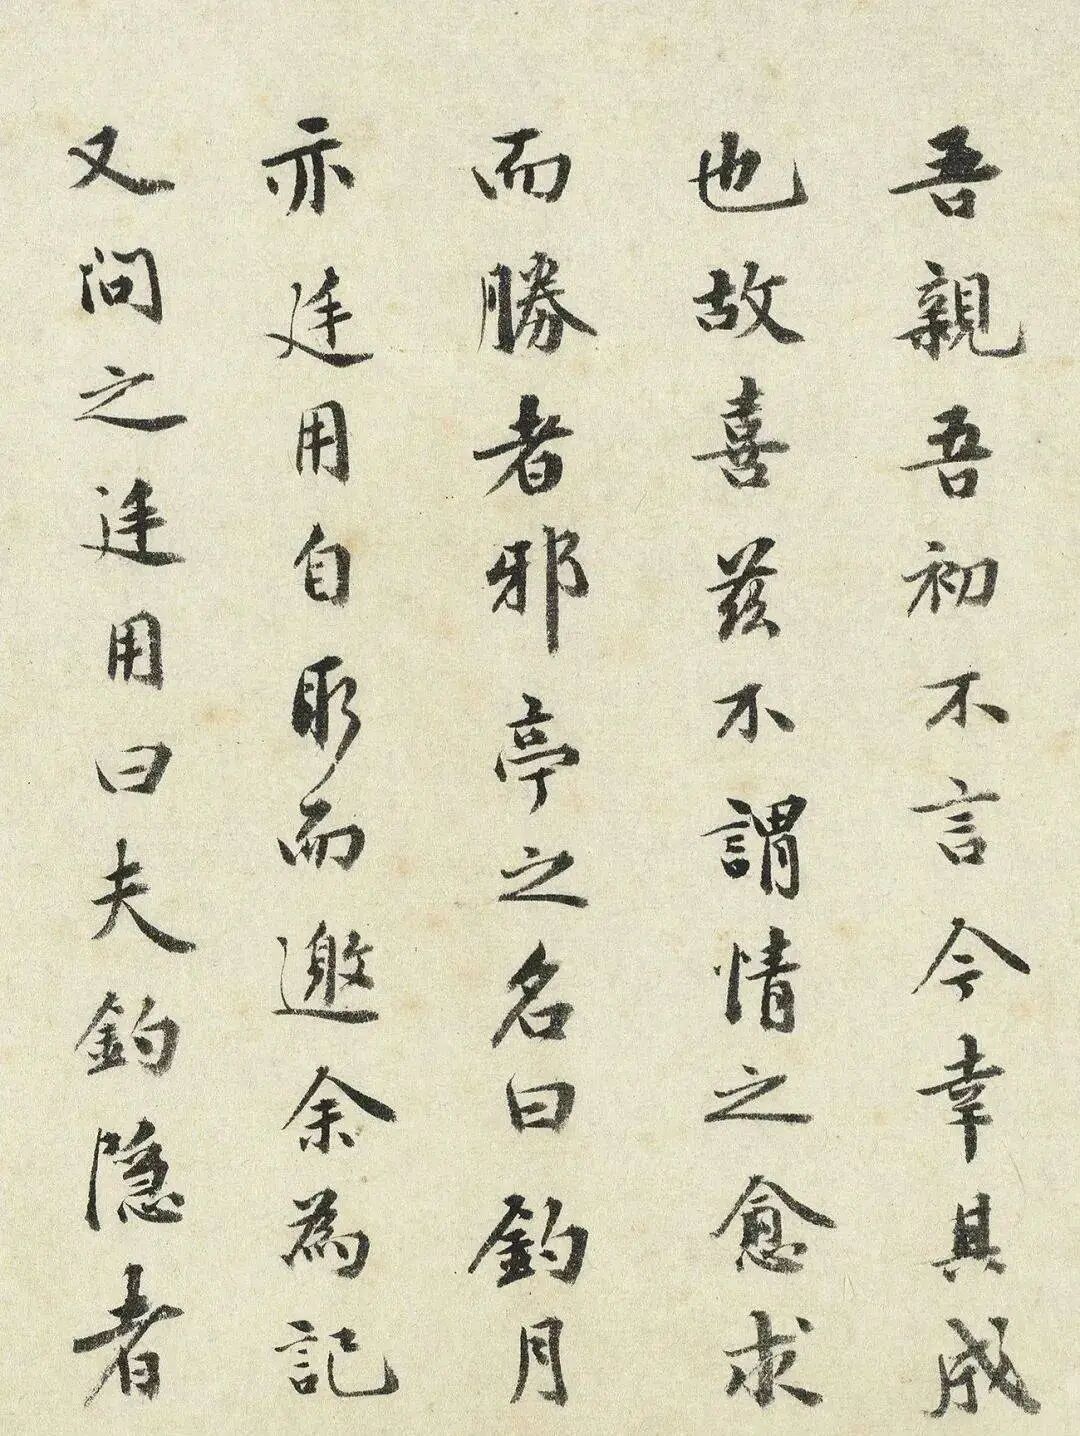 吾親吾初不言今幸其成
也故喜茲不謂情之愈求
而勝者邪亭之名曰釣月
亦廷用自取而邀余為記
又問之廷用曰夫釣隱者